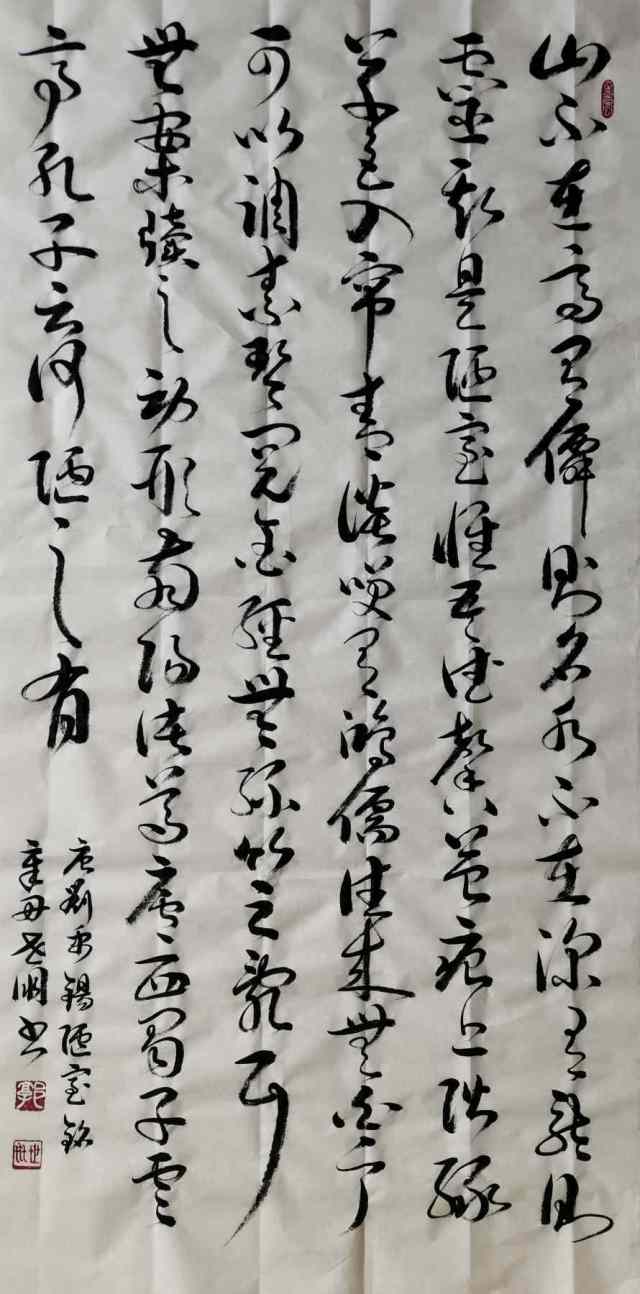 山不在高有僊則名水不在深有龍則
靈斯是陋室惟吾德馨苔痕上階綠
草色入帘青談笑有鴻儒往來無白丁
可以調素琴閱金經無絲竹之亂耳
無案牘之勞形南陽諸葛廬西蜀子雲
亭孔子云何陋之有
唐劉禹錫陋室銘
辛丑 書
郭